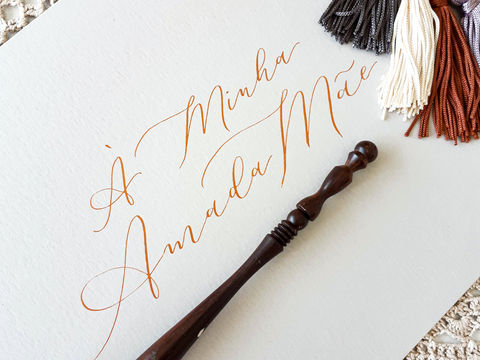 À Minha
Amada Mãe